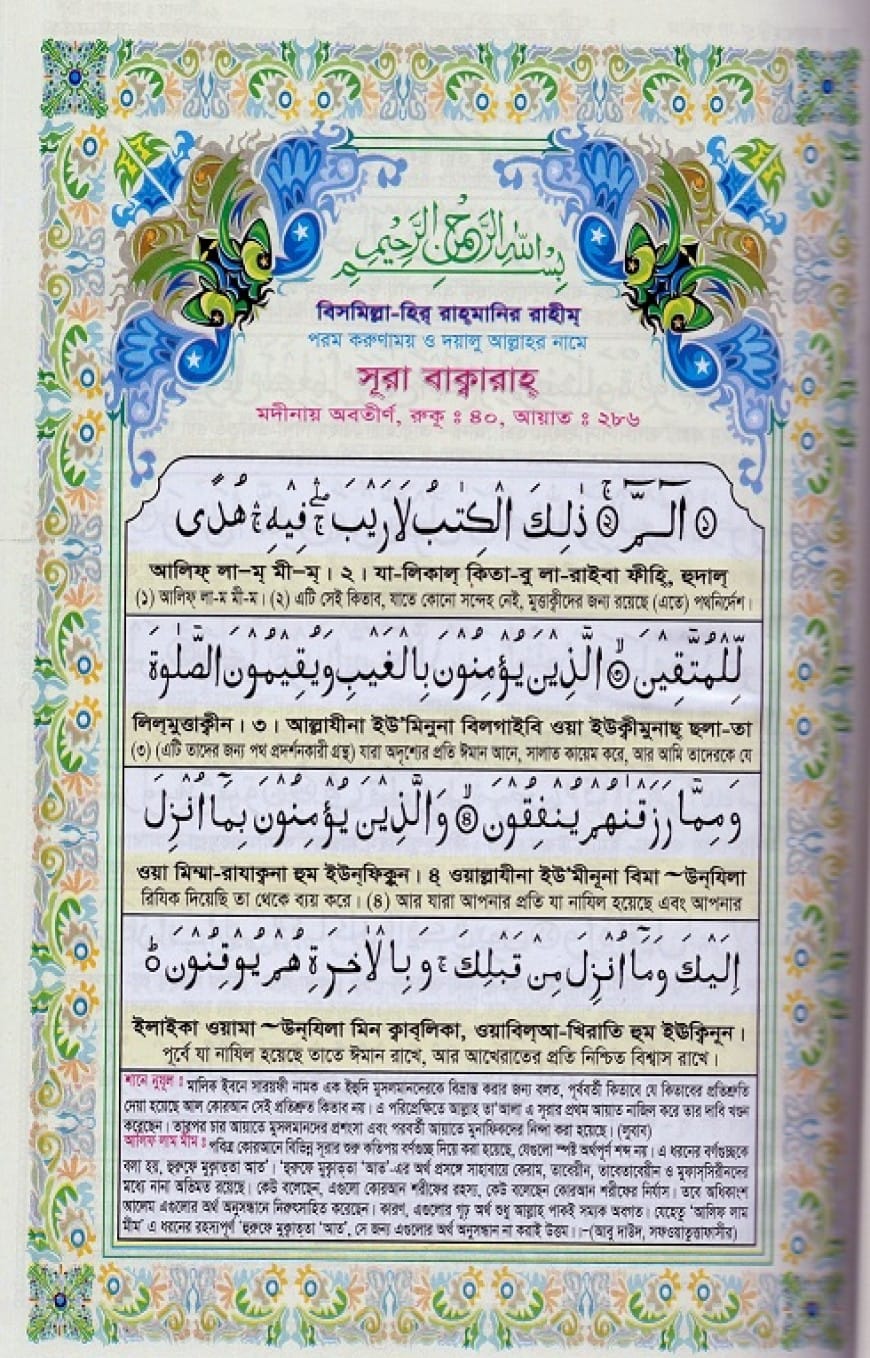 بِسْمِ اللهِ الرَّحْمٰنِ الرَّحِيْمِ
বিসমিল্লা-হির্ রাহ্মানির রাহীম্
পরম করুণাময় ও দয়ালু আল্লাহর নামে
সূরা বাক্বারাহ্
মদীনায় অবতীর্ণ, রুকূ ঃ ৪০, আয়াত ঃ ২৮৬
۝١ الٓـمّٓ ۝٢ ذٰلِكَ الْكِتٰبُ لَارَيْبَ ۛ فِيْهِ ۛ هُدًى
আলিফ্ লা–ম্ মী–ম্। ২। যা-লিকাল্ কিতা-বু লা-রাইবা ফীহি, হুদাল্
(১) আলিফ্ লা-ম মী-ম। (২) এটি সেই কিতাব, যাতে কোনো সন্দেহ নেই, মুত্তাকীদের জন্য রয়েছে (এতে) পথনির্দেশ।
لِّلْمُتَّقِيْنَ ۝٣ الَّذِيْنَ يُؤْمِنُوْنَ بِالْغَيْبِ وَيُقِيْمُوْنَ الصَّلٰوةَ
লিল্মুত্তাক্বীন। ৩। আল্লাযীনা ইউ'মিনুনা বিলগাইবি ওয়া ইউক্বীমুনাছ্ ছলা-তা
(৩) (এটি তাদের জন্য পথ প্রদর্শনকারী গ্রন্থ) যারা অদৃশ্যের প্রতি ঈমান আনে, সালাত কায়েম করে, আর আমি তাদেরকে যে
وَمِمَّا رَزَقْنٰهُمْ يُنْفِقُوْنَ ۝٤ وَالَّذِيْنَ يُؤْمِنُوْنَ بِمَآ اُنْزِلَ
ওয়া মিম্মা-রাযাক্বনা হুম ইউন্ফিকুন। ৪ ওয়াল্লাযীনা ইউ'মীনূনা বিমা ~উন্যিলা
রিযিক দিয়েছি তা থেকে ব্যয় করে। (৪) আর যারা আপনার প্রতি যা নাযিল হয়েছে এবং আপনার
اِلَيْكَ وَمَآ اُنْزِلَ مِنْ قَبْلِكَ ۚ وَبِالْاٰخِرَةِ هُمْ يُوْقِنُوْنَ ؕ
ইলাইকা ওয়ামা ~উন্যিলা মিন ক্বাব্লিকা, ওয়াবিল্আ-খিরাতি হুম ইঊক্বিনূন।
পূর্বে যা নাযিল হয়েছে তাতে ঈমান রাখে, আর আখেরাতের প্রতি নিশ্চিত বিশ্বাস রাখে।
শানে নুযূল ঃ মালিক ইবনে সারয়ফী নামক এক ইহুদি মুসলমানদেরকে বিভ্রান্ত করার জন্য বলত, পূর্ববর্তী কিতাবে যে কিতাবের প্রতিশ্রুতি
দেয়া হয়েছে আল কোরআন সেই প্রতিশ্রুত কিতাব নয়। এ পরিপ্রেক্ষিতে আল্লাহ তা'আলা এ সূরার প্রথম আয়াত নাজিল করে তার দাবি খণ্ডন
করেছেন। তারপর চার আয়াতে মুসলমানদের প্রশংসা এবং পরবর্তী আয়াতে মুনাফিকদের নিন্দা করা হয়েছে। (লুবাব)
আলিফ লাম মীম ঃ পবিত্র কোরআনে বিভিন্ন সূরার শুরু কতিপয় বর্ণগুচ্ছ দিয়ে করা হয়েছে, যেগুলো স্পষ্ট অর্থপূর্ণ শব্দ নয়। এ ধরনের বর্ণগুচ্ছকে
বলা হয়, হুরুফে মুক্বাত্তা আত'। 'হুরুফে মুক্বাত্তা 'আত'-এর অর্থ প্রসঙ্গে সাহাবায়ে কেরাম, তাবেয়ীন, তাবেতাবেয়ীন ও মুফাস্সিরীনদের
মধ্যে নানা অভিমত রয়েছে। কেউ বলেছেন, এগুলো কোরআন শরীফের রহস্য, কেউ বলেছেন কোরআন শরীফের নির্যাস। তবে অধিকাংশ
আলেম এগুলোর অর্থ অনুসন্ধানে নিরুৎসাহিত করেছেন। কারণ, এগুলোর গূঢ় অর্থ শুধু আল্লাহ পাকই সম্যক অবগত। যেহেতু 'আলিফ লাম
মীম' এ ধরনের রহস্যপূর্ণ 'হুরুফে মুক্বাত্তা 'আত', সে জন্য এগুলোর অর্থ অনুসন্ধান না করাই উত্তম।।-(আবু দাউদ, সফওয়াতুত্তাফাসীর)